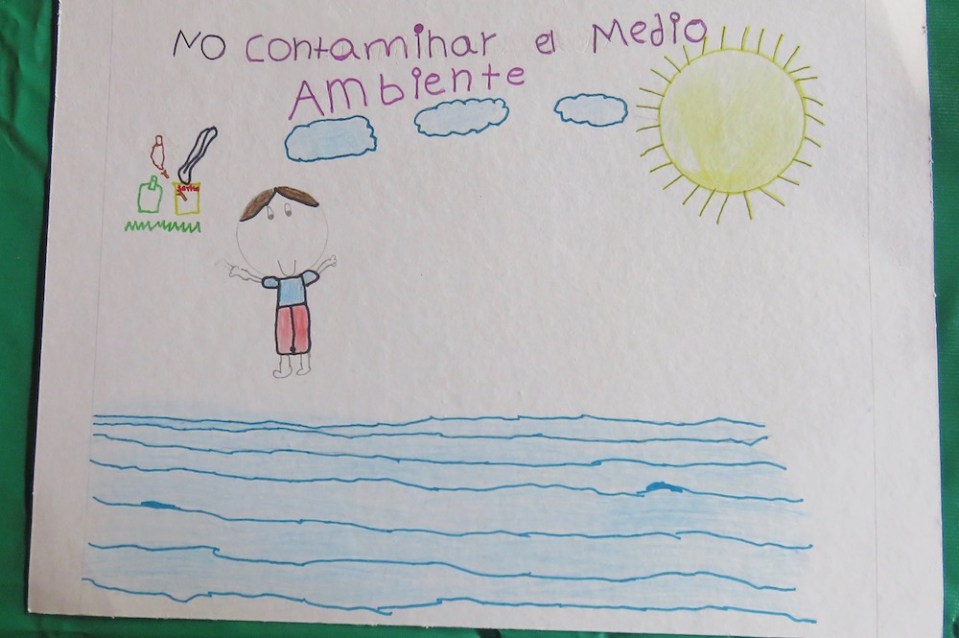 NO contaminar el Medio
AMbiente